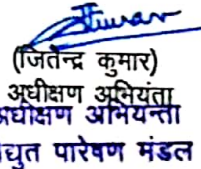 (जितेन्द्र कुमार)
अधीक्षण अभियंता
अधीक्षण अभियन्ता
द्युत पारेषण मंडल